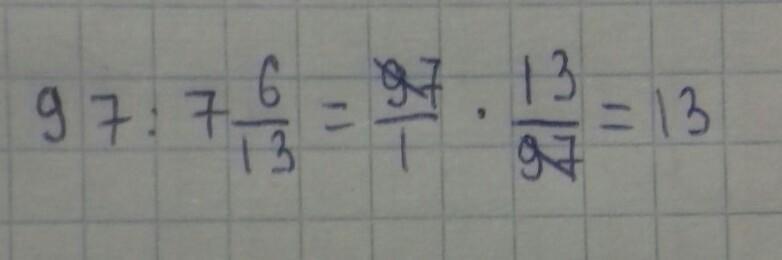 97 : 7 6/13 = 97/1 · 13/97 = 13